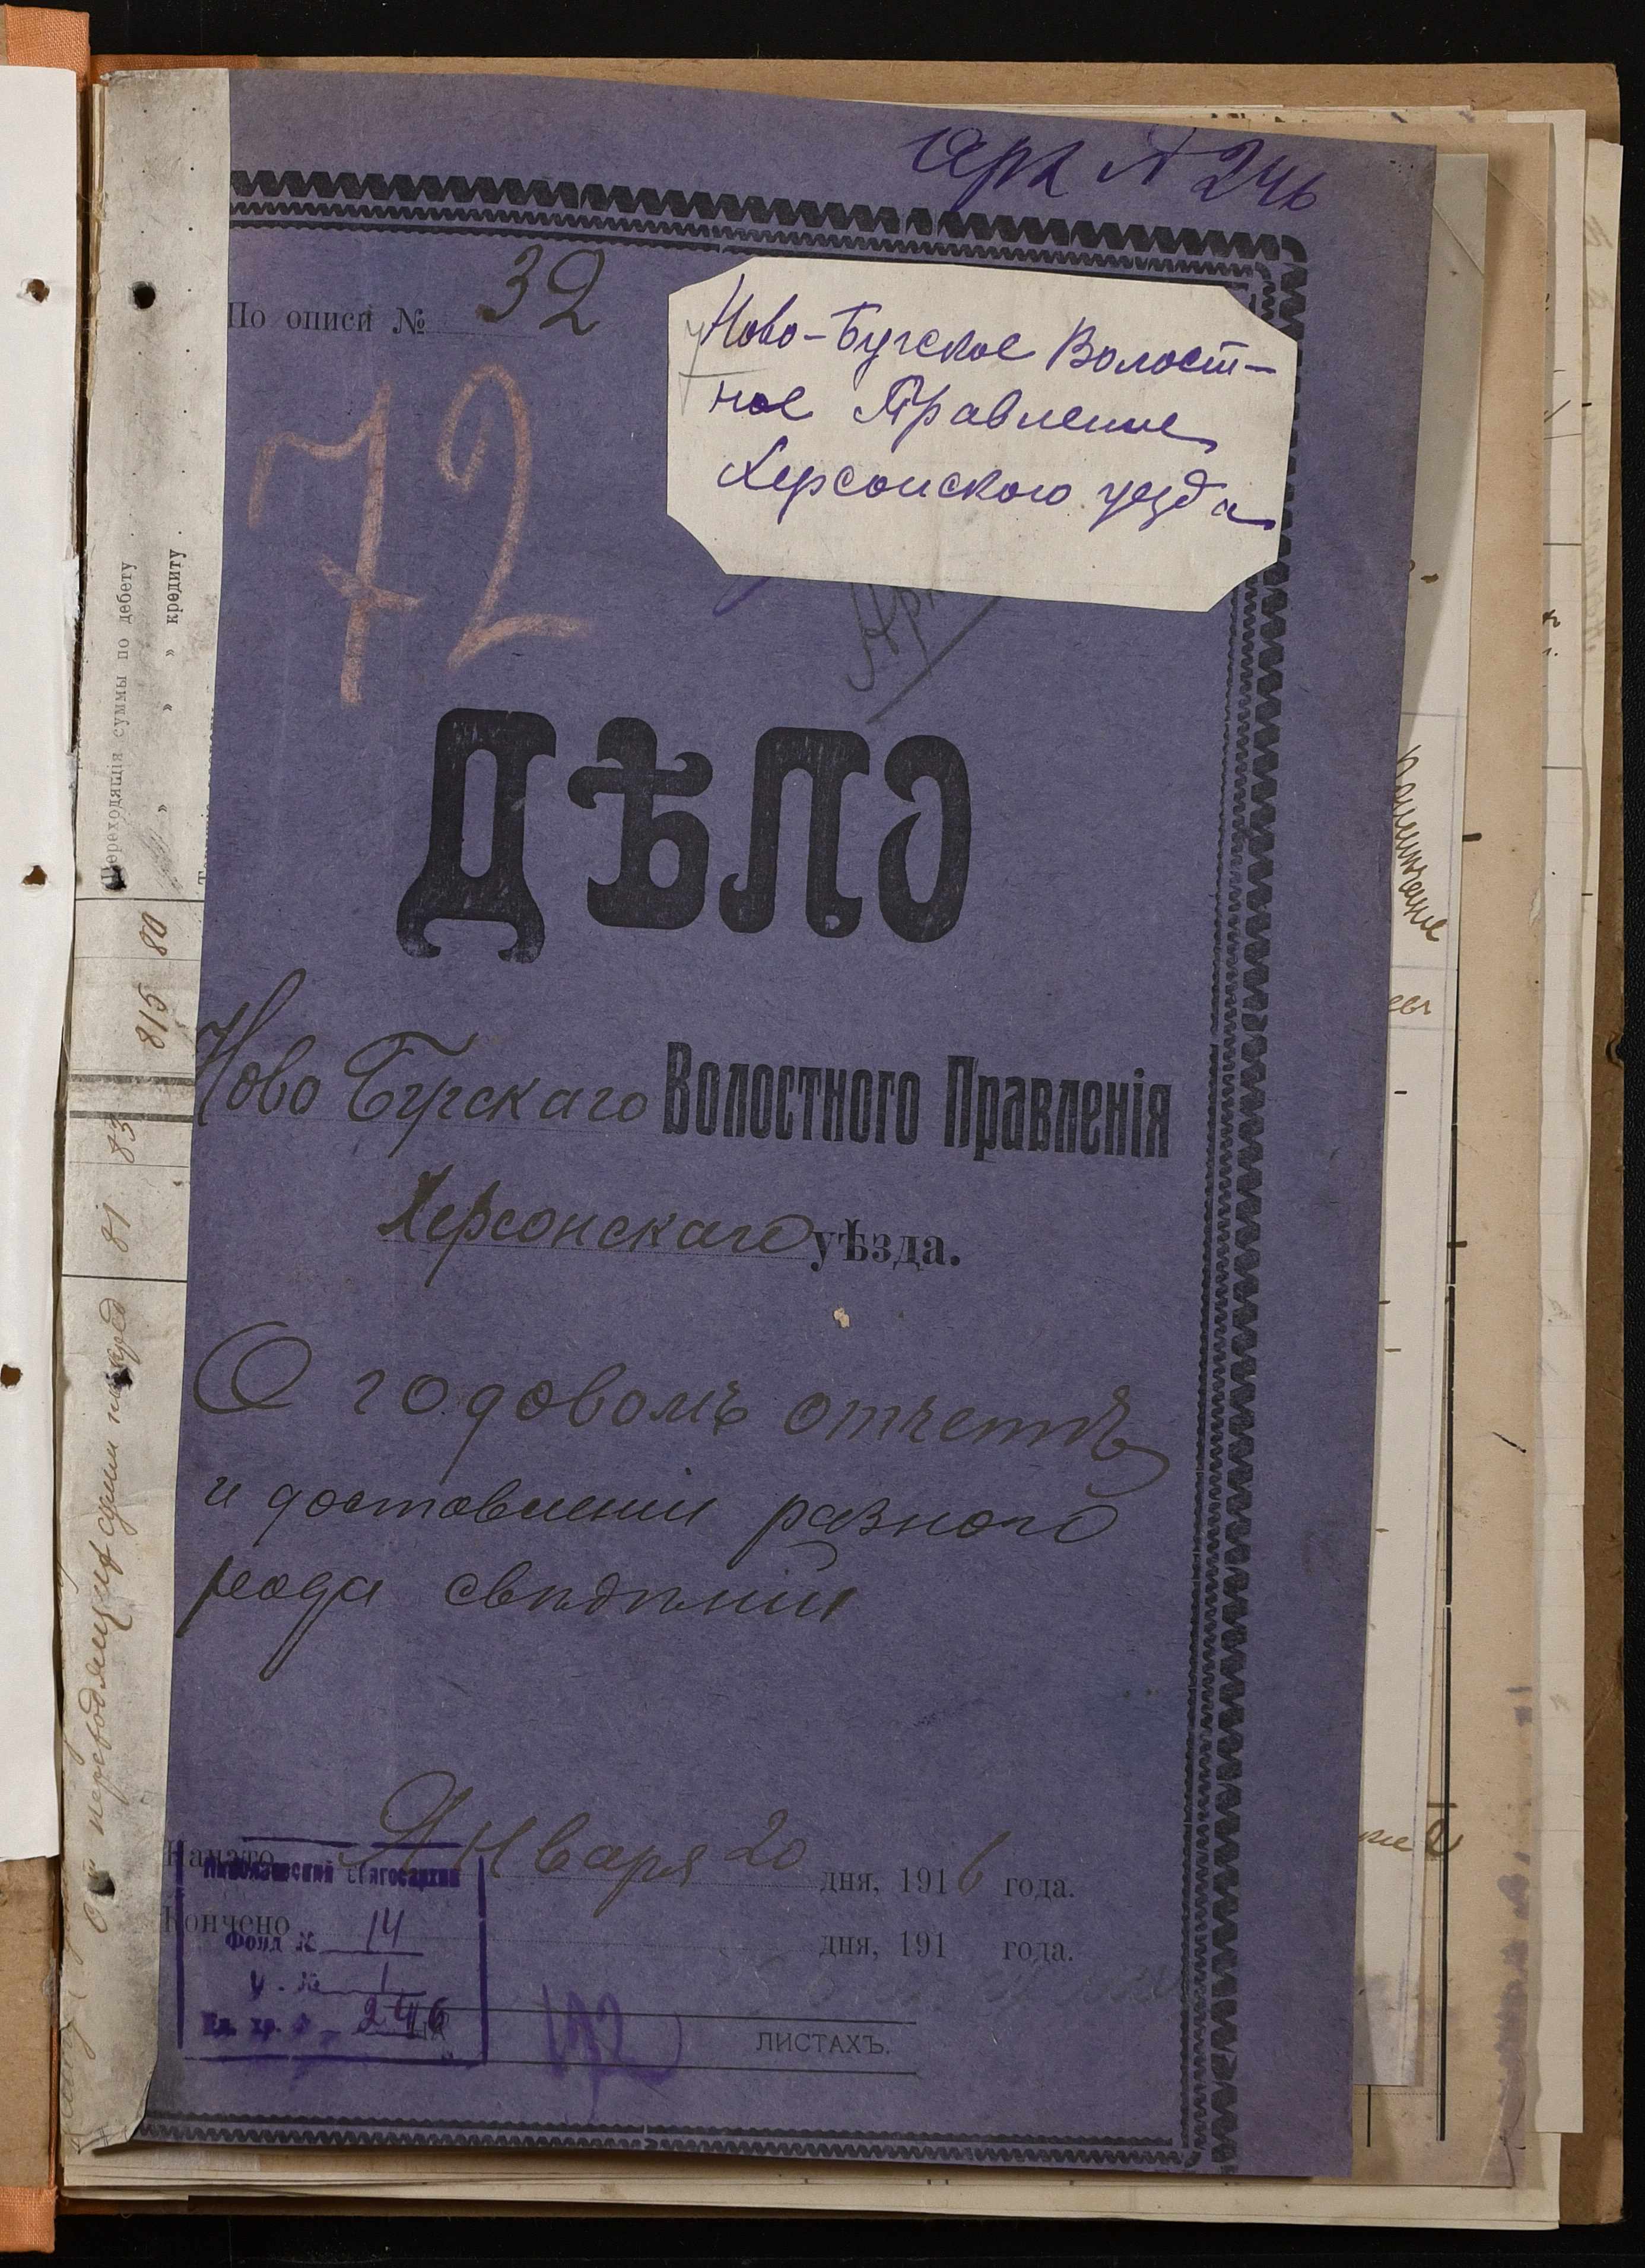 арх № 246
По описи № 32
Ново-Бугское Волост-
ное Правление
Херсонского уезда
72
Арх
ДѢЛО
Ново Бугскаго Волостного Правленія
Херсонскаго уѣзда.
О годовомъ отчетѣ
и доставленіи разнаго
рода свѣдѣній
Начато Января 20 дня, 1916 года.
Кончено дня, 191 года.
Николаевский
Фонд № 14
№ 1
Ед. хр. № 246
на 192 ЛИСТАХЪ.
Переходящія суммы по дебету
" " кредиту
815 80
81 83
переводящия сумм
Примѣчаніе